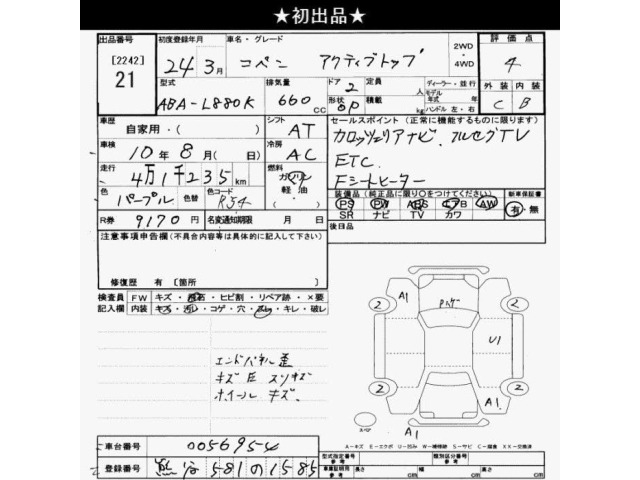 ★初出品★
出品番号
[2242]
21
初度登録年月
24年3月
車名・グレード
コペン アクティブトップ
2WD
・
4WD
評価点
4
外装 内装
C B
型式
ABA-L880K
排気量
660cc
ドア 2
形状 OP
定員 人
積載 kg
ディーラー・並行
モデル年式 年
ハンドル 左・右
車歴
自家用・( )
シフト
AT
車検
10年8月(日)
冷房
AC
走行
4万1千235km
燃料
ガソリン
軽・油
色
パープル
色替
色コード
R54
R券
9170円
名変通知期限 月 日
セールスポイント(正常に機能するものに限ります)
カロッツェリアナビ.フルセグTV
ETC.
Fシートヒーター
装備品(純正品に限り○をつけてください)
PS PW ABS エアB AW
SR ナビ TV カワ
新車保証書
有・無
後日品
注意事項申告欄(不具合内容等は具体的に記入して下さい)
修復歴 有 〔箇所 〕
検査員
記入欄
FW キズ・飛石・ヒビ割・リペア跡・×要
内装 キズ・汚レ・コゲ・穴・スレ・キレ・破レ
エンドパネル歪
キズE スリキズ
ホイールキズ.
A1
2
2
U1
2
2
A1
スペア
A1
A-キズ E-エクボ U-凹み W-補修跡 S-サビ C-腐食 XX-交換済
車台番号
0056954
登録番号
熊谷581の1585
型式指定番号
参考
類別区分番号
参考
車庫証明用
参考
長さ cm
幅 cm
高さ cm